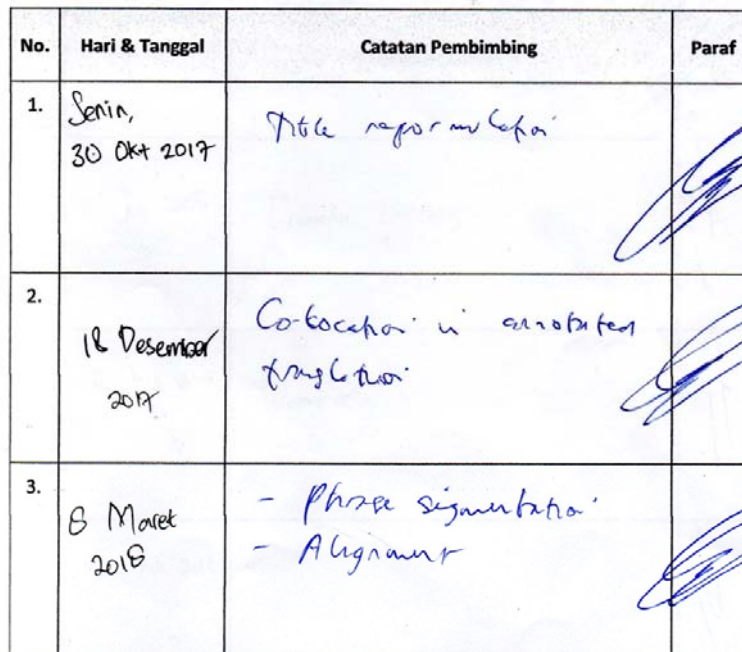 No. Hari & Tanggal Catatan Pembimbing Paraf
1. Senin,
30 Okt 2017
Title reformulation
2. 18 Desember
2017
Co-location in annotated
translation
3. 8 Maret
2018
- Phrase sigmentation
- Alignment